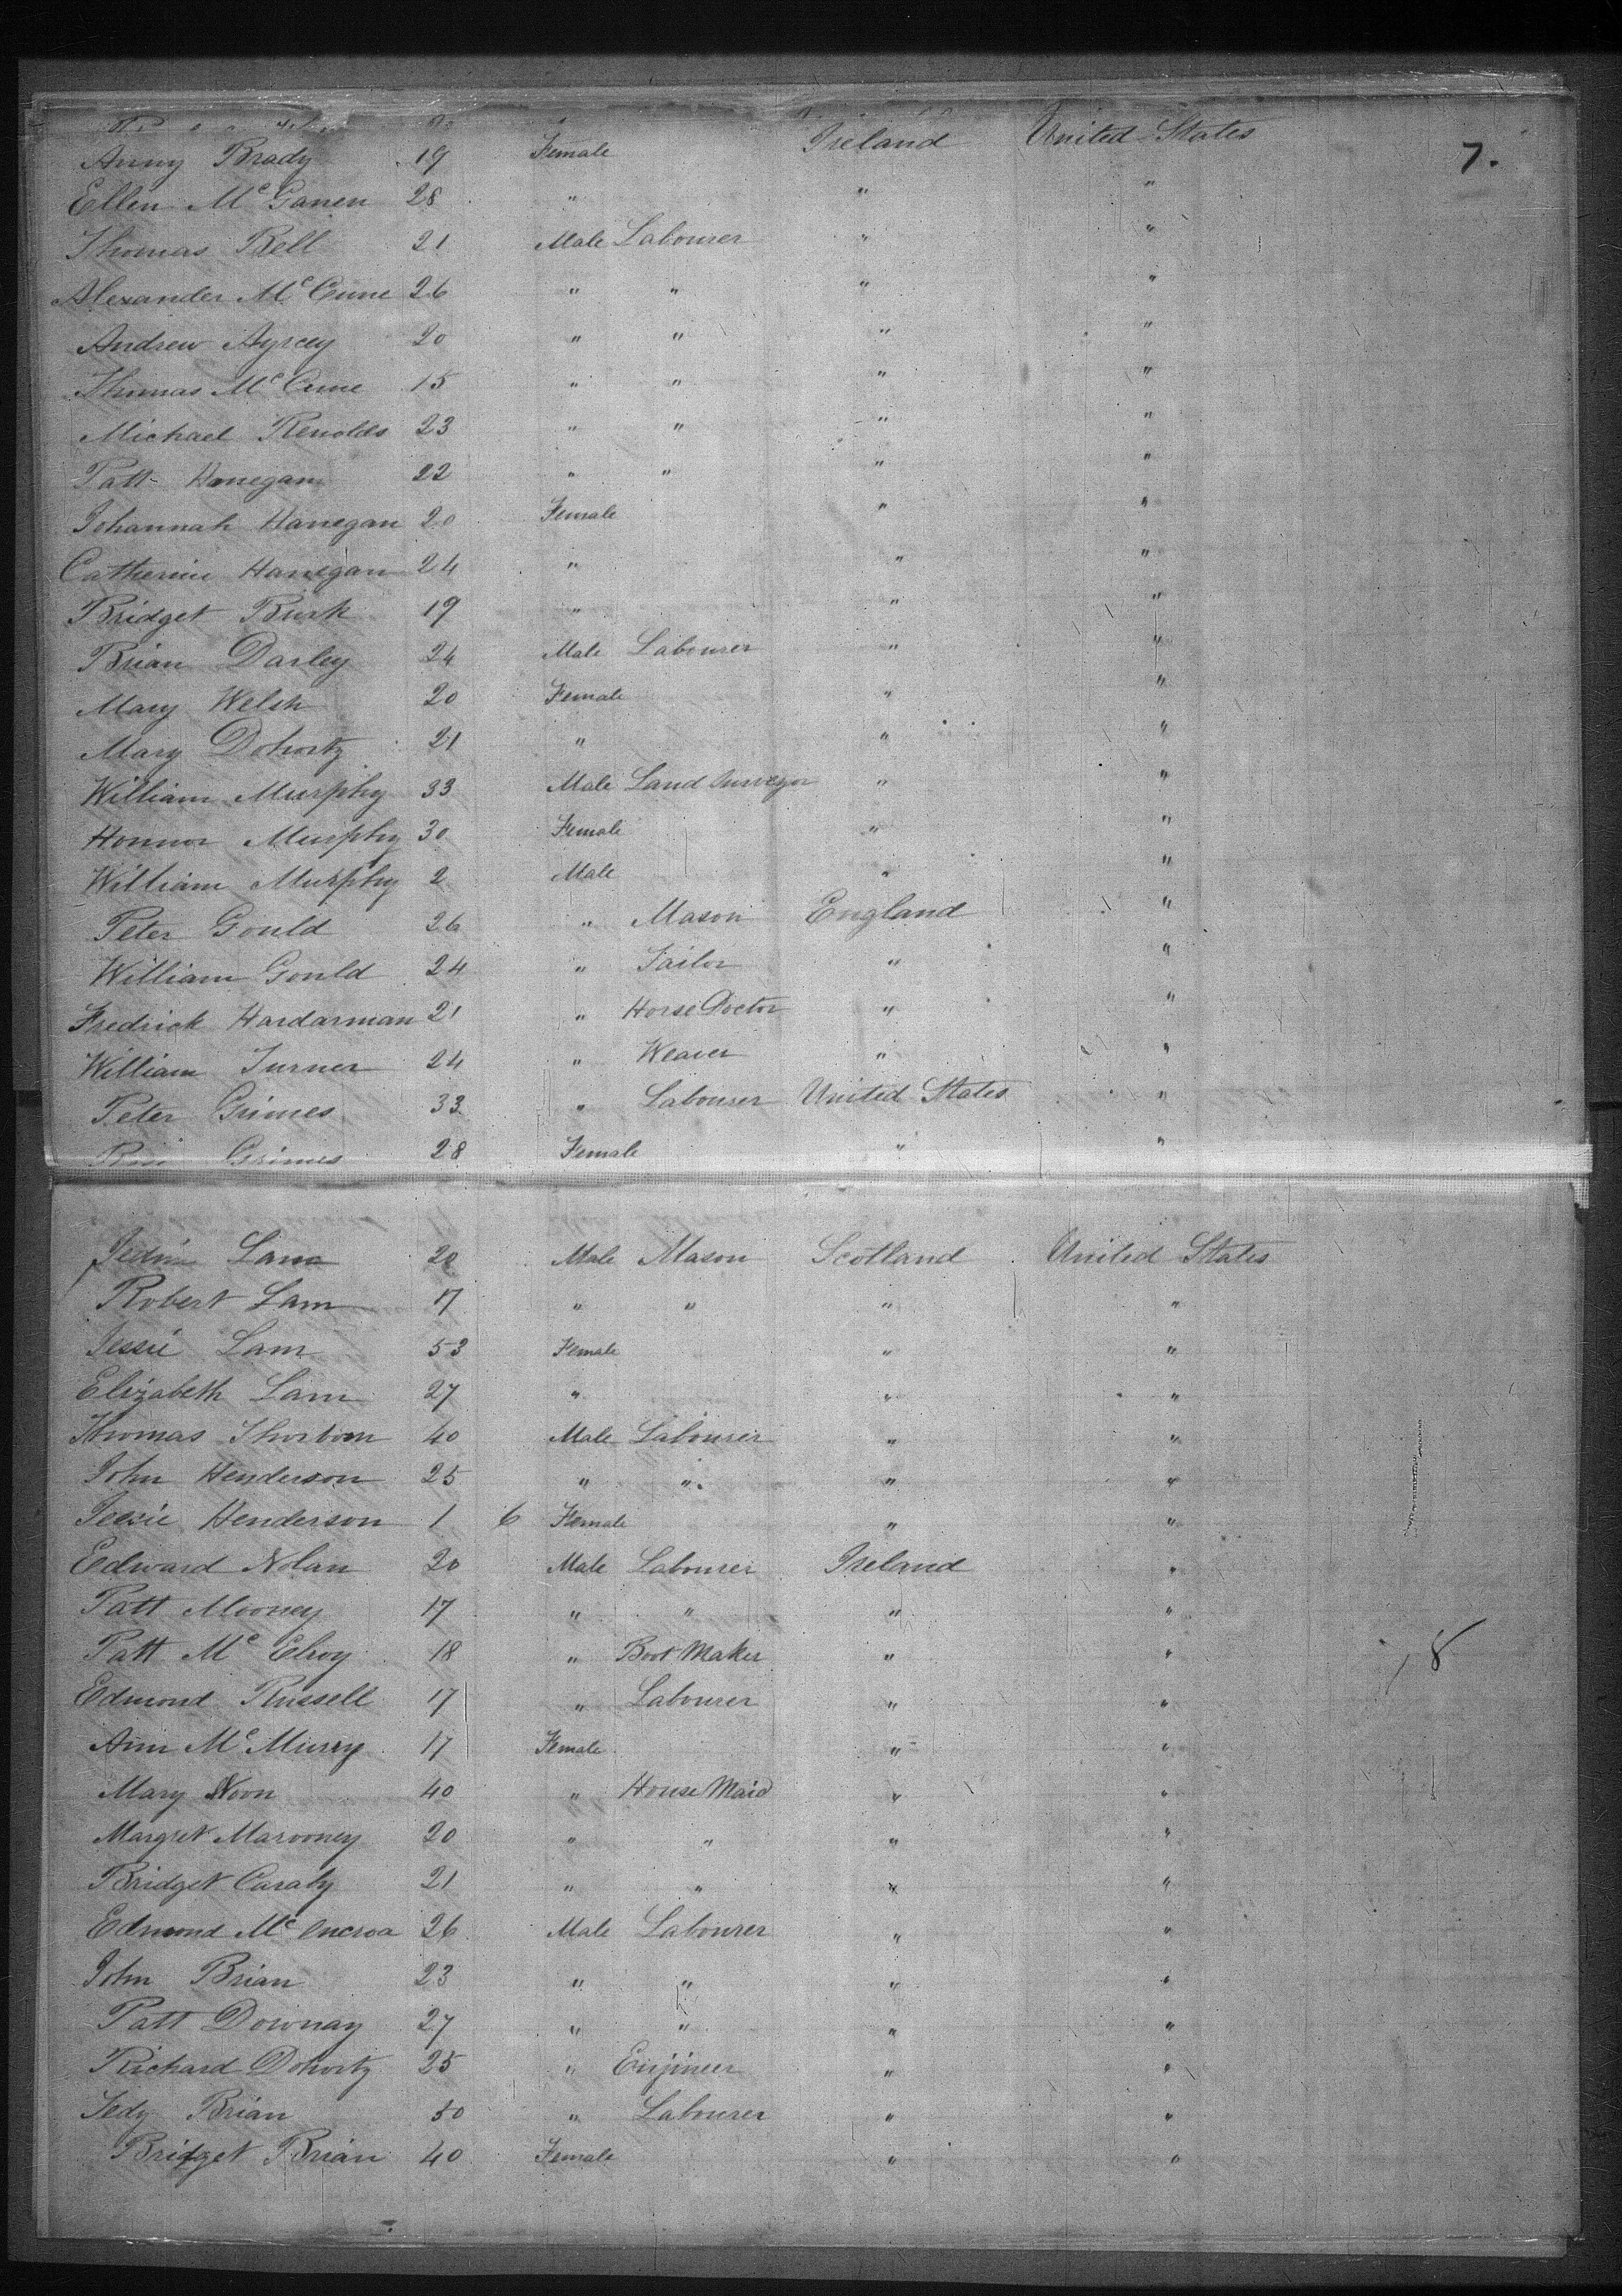 Anny Brady 19 Female Ireland United States 7.
Ellen Mc Ganen 28 " " "
Thomas Bell 21 Male Labourer " "
Alexander Mc Cune 26 " " " "
Andrew Ayrcey 20 " " " "
Thomas Mc Cune 15 " " " "
Michael Renolds 23 " " " "
Patt Hanegan 22 " " " "
Johannah Hanegan 20 Female " "
Catherine Hanegan 24 " " "
Bridget Burk 19 " " "
Brian Darley 24 Male Labourer " "
Mary Welsh 20 Female " "
Mary Dohorty 21 " " "
William Murphy 33 Male Land Surveyor " "
Honnor Murphy 30 Female " "
William Murphy 2 Male " "
Peter Gould 26 " Mason England "
William Gould 24 " Tailor " "
Fredrick Hardarman 21 " Horse Doctor " "
William Turner 24 " Weaver " "
Peter Grimes 33 " Labourer United States "
Grimes 28 Female " "
Lam 28 Male Mason Scotland United States
Robert Lam 17 " " " "
Jessie Lam 53 Female " "
Elizabeth Lam 27 " " "
Thomas Thorborn 40 Male Labourer " "
John Henderson 25 " " " "
Jessie Henderson 1 6 Female " "
Edward Nolan 20 Male Labourer Ireland "
Patt Mooney 17 " " " "
Patt Mc Elroy 18 " Boot Maker " " 8
Edmond Russell 17 " Labourer " "
Ann Mc Murry 17 Female " "
Mary Noon 40 " House Maid " "
Margret Marooney 20 " " " "
Bridget Caraly 21 " " " "
Edmond Mc 26 Male Labourer " "
John Brian 23 " " " "
Patt Downay 27 " " " "
Richard Dohorty 25 " Enjineer " "
Tedy Brian 50 " Labourer " "
Bridget Brian 40 Female " "